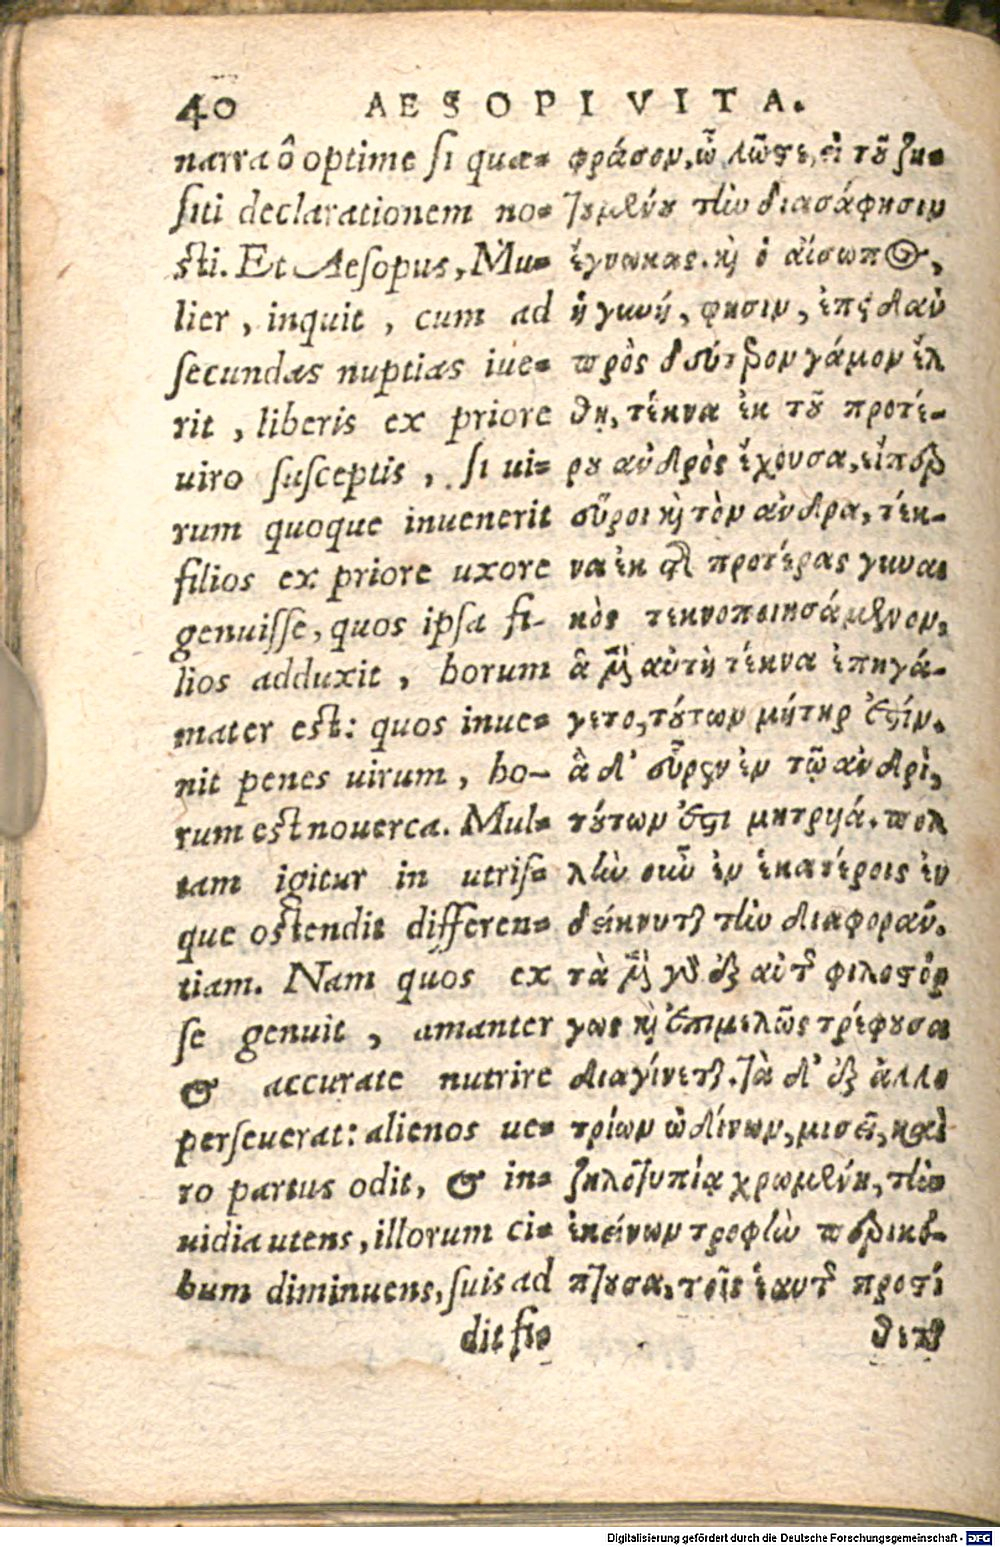 40 AESOPI VITA.
narra ô optime si quæ-
siti declarationem no-
sti. Et Aesopus, Mu-
lier, inquit, cum ad
secundas nuptias iue-
rit, liberis ex priore
uiro susceptis, si ui-
rum quoque inuenerit
filios ex priore uxore
genuisse, quos ipsa fi-
lios adduxit, horum
mater est: quos inue-
nit penes uirum, ho-
rum est nouerca. Mul-
tam igitur in utris-
que ostendit differen-
tiam. Nam quos ex
se genuit, amanter
& accurate nutrire
perseuerat: alienos ue-
ro partus odit, & in-
uidia utens, illorum ci-
bum diminuens, suis ad
dit fio
φράσον, ὦ λῶστε, εἰ τοῦ ζη-
τουμένου τὴν διασάφησιν
ἔγνωκας. καὶ ὁ αἴσωπος,
ἡ γυνή, φησιν, ἐπειδὰν
πρὸς δεύτερον γάμον ἔλ
θῃ, τέκνα ἐκ τοῦ προτέ-
ρου ἀνδρὸς ἔχουσα, εἴπερ
εὕροι καὶ τὸν ἄνδρα, τέκ-
να ἐκ τῆς προτέρας γυναι
κὸς τεκνοποιησάμενον,
ἃ μὲν αὐτὴ τέκνα ἐπηγά-
γετο, τούτων μήτηρ ἐστίν.
ἃ δ' εὗρεν ἐν τῷ ἀνδρὶ,
τούτων ἐστι μητρυιά. πολ
λὴν οὖν ἐν ἑκατέροις ἐν
δείκνυται τὴν διαφοράν.
τὰ μὲν γὰρ ἐξ αὐτῆς φιλοστόρ
γως καὶ ἐπιμελῶς τρέφουσα
διαγίνεται. τὰ δ' ἐξ ἀλλο
τρίων ὠδίνων, μισεῖ, καὶ
ζηλοτυπίᾳ χρωμένη, τὴν
ἐκείνων τροφὴν περικό-
πτουσα, τοῖς ἑαυτῆς προστί
θεται
Digitalisierung gefördert durch die Deutsche Forschungsgemeinschaft - DFG